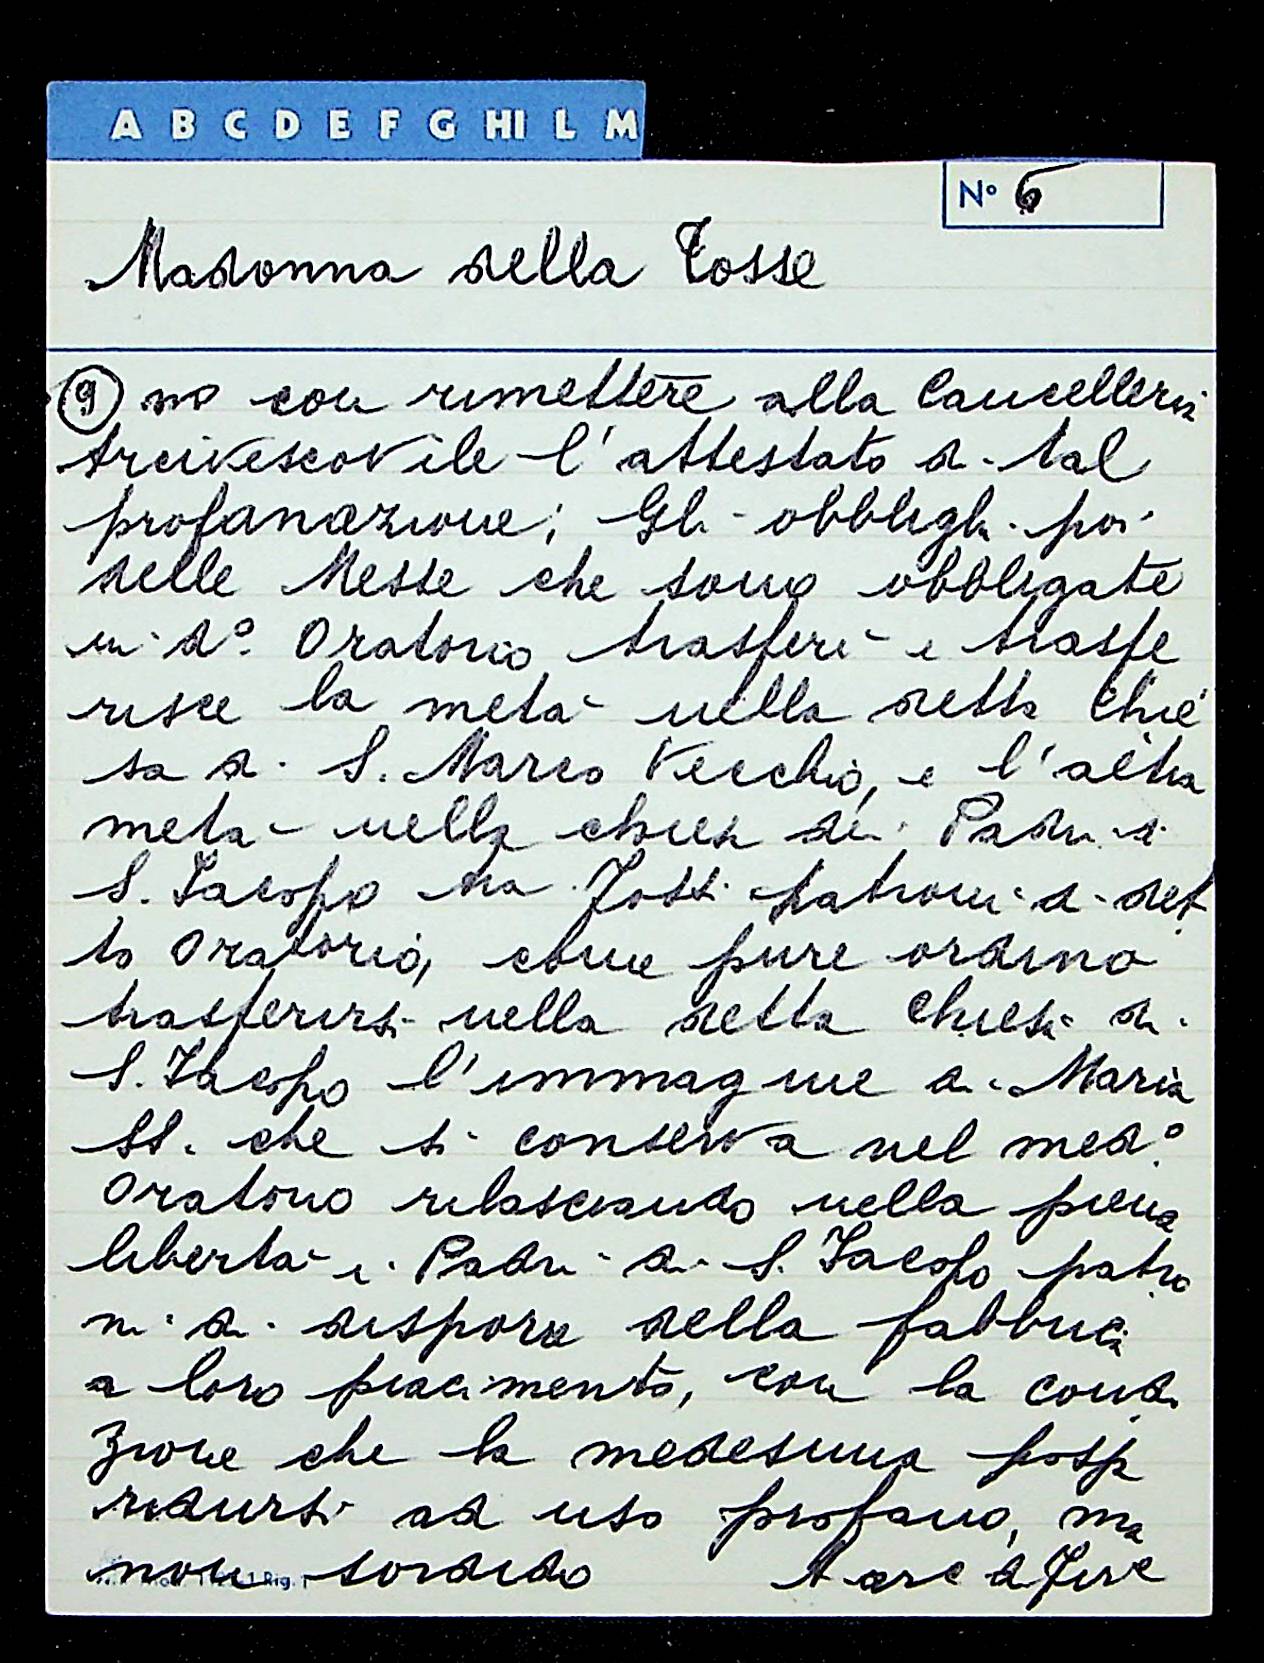 A B C D E F G HI L M
N° 6
Madonna della Tosse
9 no con rimettere alla Cancelleria
Arcivescovile l'attestato di tal
profanazione; Gli obblighi poi
delle Messe che sono obbligate
in d°. Oratorio trasferì e trasfe
risce la metà nella detta Chie
sa di S. Marco Vecchio, e l'altra
metà nella chiesa dei Padri di
S. Jacopo tra Fossi patroni di det
to Oratorio, come pure ordinò
trasferirsi nella detta Chiesa di
S. Jacopo l'immagine di Maria
SS. che si conserva nel med°.
Oratorio rilasciando nella piena
libertà i Padri di S. Jacopo patro
ni di disporre della fabbrica
a loro piacimento, con la condi
zione che la medesima possa
ridursi ad uso profano, ma
non sordido A. arc di Fire